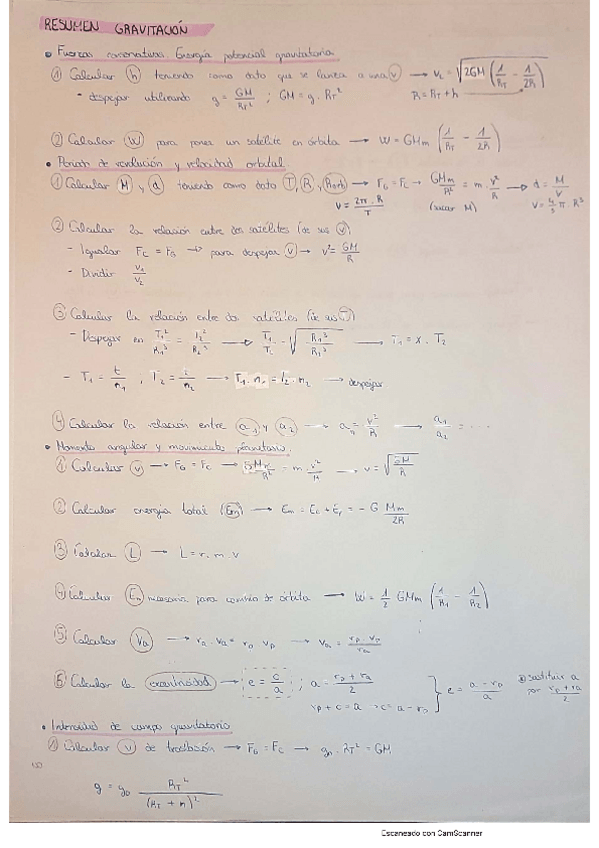 RESUMEN GRAVITACIÓN
• Fuerzas conservativas. Energía potencial gravitatoria
① Calcular (h) teniendo como dato que se lanza a una (v) → v_L = √(2GM (1/R_T − 1/2R))
- despejar utilizando g = GM/R_T² ; GM = g · R_T² R = R_T + h
② Calcular (W) para poner un satélite en órbita → W = GMm (1/R_T − 1/2R)
• Periodo de revolución y velocidad orbital.
① Calcular (M) y (d) teniendo como dato (T), (R) y → F_G = F_C → GMm/R² = m · v²/R → d = M/V
v = 2π · R/T (sacar M) V = 4/3 π · R³
② Calcular la relación entre dos satélites (de sus (v))
- Igualar F_C = F_G → para despejar (v) → v² = GM/R
- Dividir v₁/v₂
③ Calcular la relación entre dos satélites (de sus (T))
- Despejar en T₁²/R₁³ = T₂²/R₂³ → T₁ = x · T₂
- T₁ = t/n₁ , T₂ = t/n₂ → T₁ · n₁ = T₂ · n₂ → despejar
④ Calcular la relación entre (a₁) y (a₂) → aₙ = v²/R → a₁/a₂ = ...
• Momento angular y movimiento planetario.
① Calcular (v) → F_G = F_C → GMm/R² = m · v²/R → v = √(GM/R)
② Calcular energía total (Em) → Em = Ec + Ep = − G Mm/2R
③ Calcular (L) → L = r · m · v
④ Calcular necesaria para cambio de órbita → W = 1/2 GMm (1/R₁ − 1/R₂)
⑤ Calcular (Va) → ra · va = rp · vp → va = rp · vp/ra
⑥ Calcular la excentricidad → e = c/a ; a = rp + ra/2 e = a − rp/a sustituir a
rp + c = a → c = a − rp por rp + ra/2
• Intensidad de campo gravitatorio
① Calcular (v) de traslación → F_G = F_C → g₀ · R_T² = GM
g = g₀ R_T²/(R_T + h)²
Escaneado con CamScanner